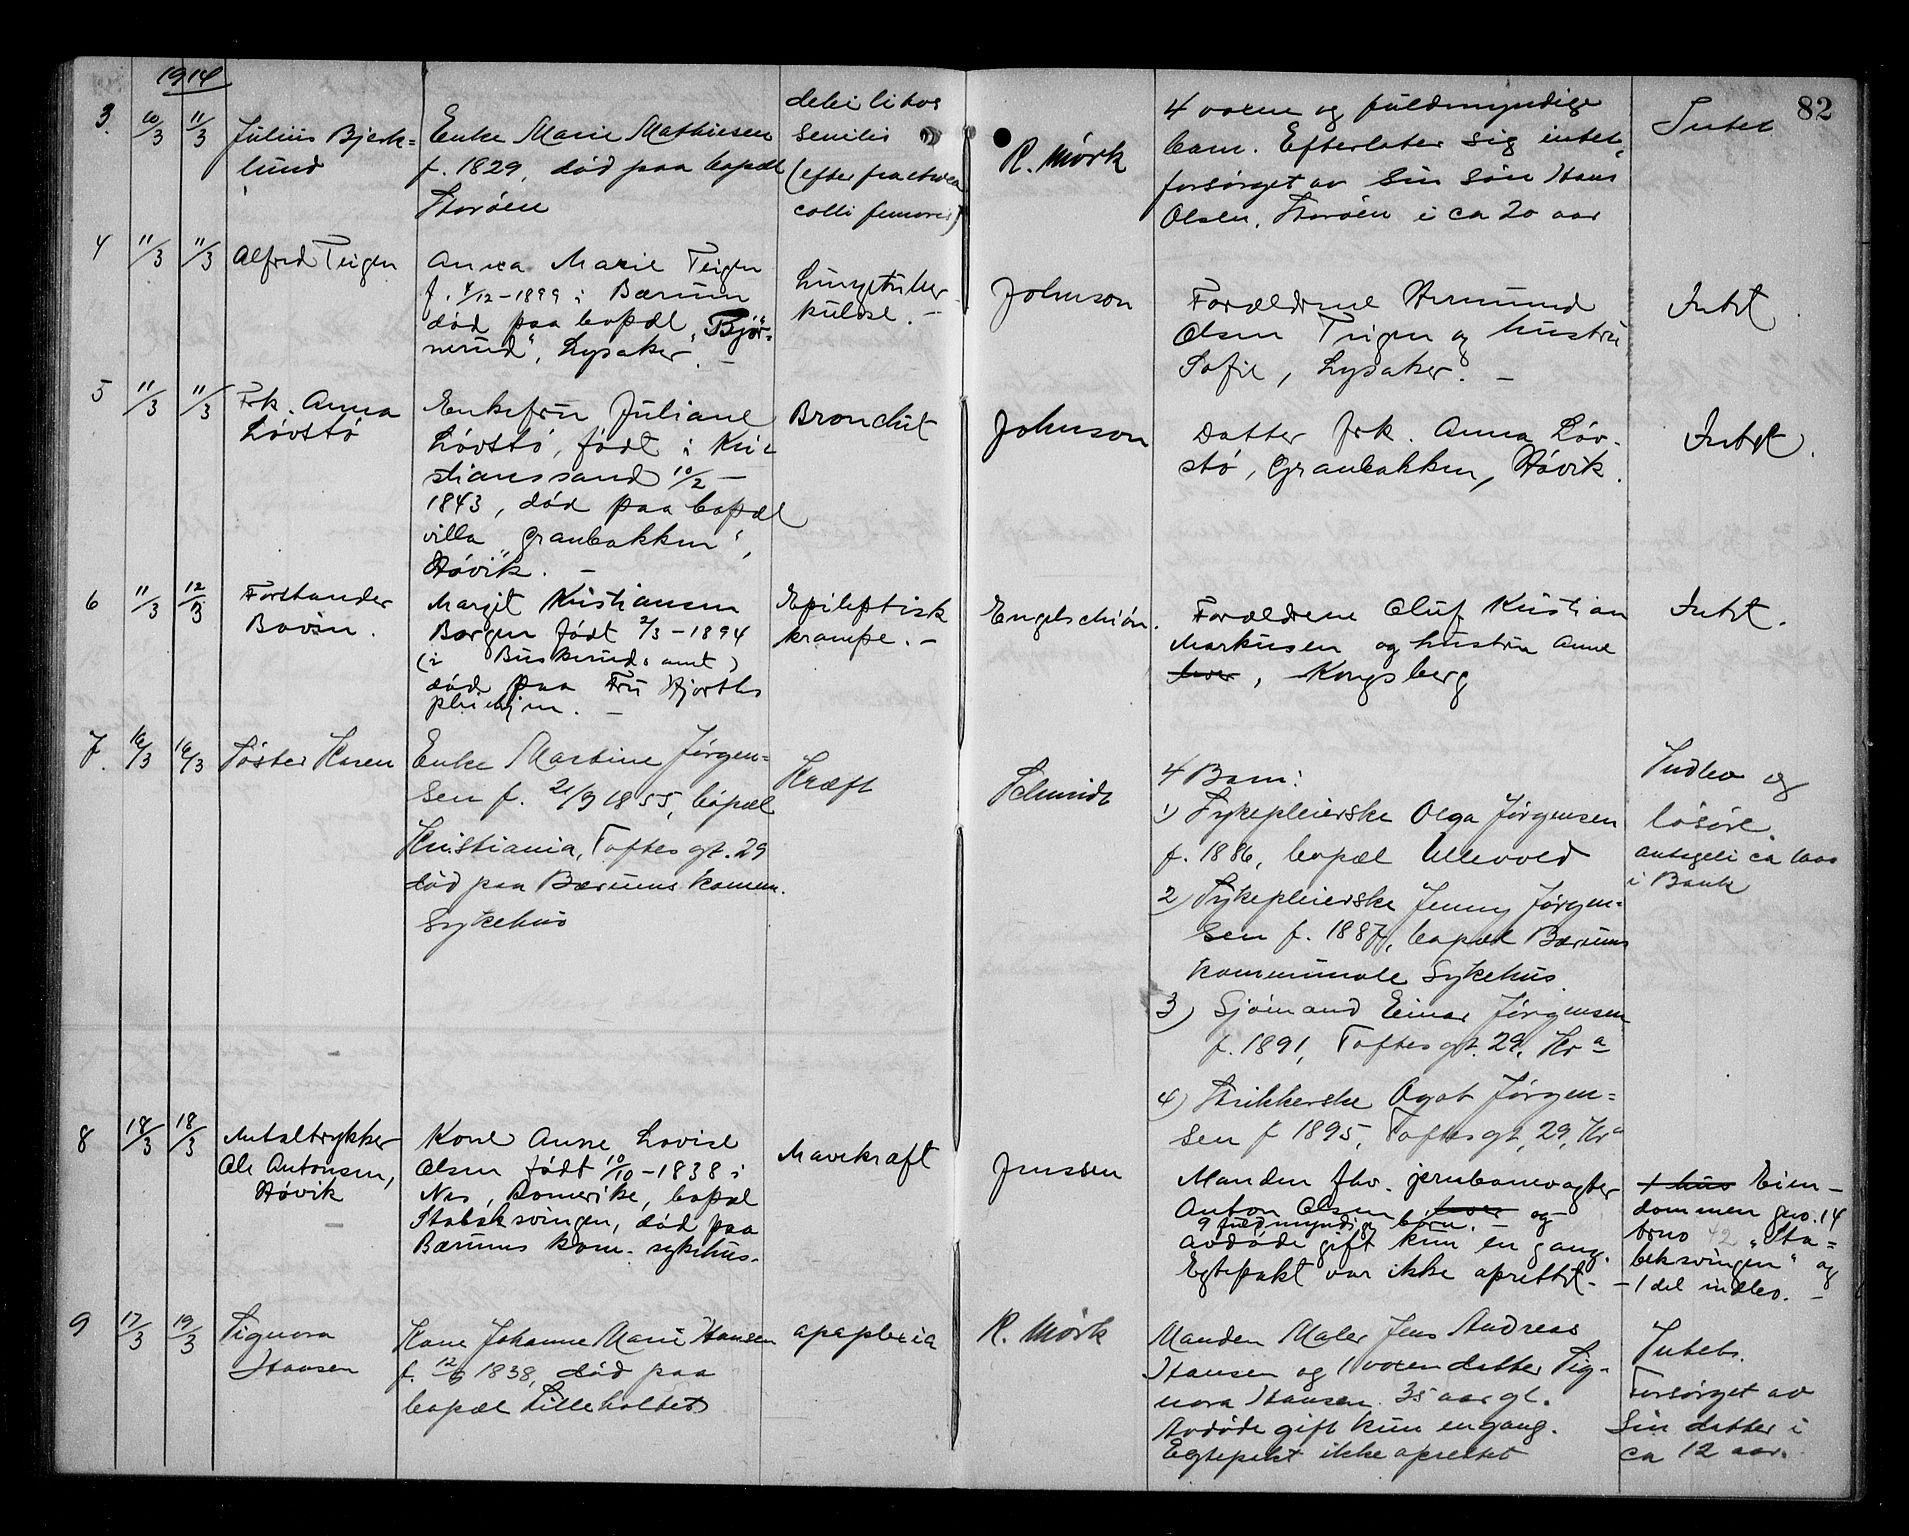 1914
82
3.
10/3
11/3
Julius Bjerk=
lund
Enke Marie Mathiesen
f. 1829, død paa bopæl
Storöen
debilitas
senilis
(efter fractura
colli femoris)
R. Mörk
4 voxne og fuldmyndige
barn. Efterlater sig intet,
forsørget av sin søn Hans
Olsen, Storöen i ca 20 aar
Intet
4
11/3
11/3
Alfred Teigen
Anna Marie Teigen
f. 4/12-1899 i Bærum
död paa bopæl „Bjør-
nerud“, Lysaker. –
Lungetuber
kulose. –
Johnson
Forældrene Hermund
Olsen Teigen og hustru
Sofie, Lysaker. –
Intet.
5
11/3
11/3
Frk. Anna
Lövstö
Enkefru Juliane
Lövstö, födt i Kri-
stianssand 10/2 –
1843, död paa bopæl
villa „Granbakken“,
Hövik. –
Bronchit
Johnson
Datter frk. Anna Löv-
stö, Granbakken, Hövik.
Intet.
6
11/3
12/3
Forstander
Margit Kristiansen
Borgen födt 2/3-1894
(i Buskeruds amt)
död paa Fru Hjorths
pleiehjem. –
Epileptisk
krampe. –
Engelschiön.
Forældrene Oluf Kristian
Markusen og hustru Anne
lever, Kongsberg
Intet.
7.
16/3
16/3
Söster Karen
Enke Martine Jørgen=
sen f. 21/9 1855, bopæl
Kristiania, Toftes gt. 29
død paa Bærums komm.
sykehus
Kræft
Schmidt
4 Barn:
1) Sykepleierske Olga Jørgensen
f. 1886, bopæl Ullevold
2) Sykepleierske Jenny Jørgen=
sen f. 1887, bopæl Bærums
kommunale sykehus.
3) Sjömand Einar Jørgensen
f. 1891, Toftes gt. 29, Kra
4) Strikkerske Agot Jørgen=
sen f 1895, Toftes gt. 29, Kra
Indbo og
løsøre.
antageli ca 1000
i Bank
8
18/3
18/3
Metaltrykker
Ole Antonsen,
Hövik
Kone Anne Lovise
Olsen födt 10/10-1838 i
Nes, Romerike, bopæl
Stabæksvingen, död paa
Bærums kom. sykehus.
Mavekræft
Jenssen
Manden fhv. jernbanevogter
Anton Olsen lever og
9 fuldmyndig börn. –
avdöde gift kun en gang.
Egtepakt var ikke oprettet. –
1 hus Eien-
dommen gno. 14
brno 42 „Sta=
beksvingen“ og
– 1 del indbo. –
9
17/3
19/3
Signora
Hansen
Kone Johanne Marie Hansen
f. 12/9 1838, død paa
bopæl Lilleholtet
apoplexia
R. Mörk
Manden Maler Jens Andreas
Hansen og 1 voxen datter Sig-
nora Hansen 35 aar gl.
Avdøde gift kun en gang.
Egtepakt ikke oprettet
Intet.
Forsørget av
sin datter i
ca 12 aar.